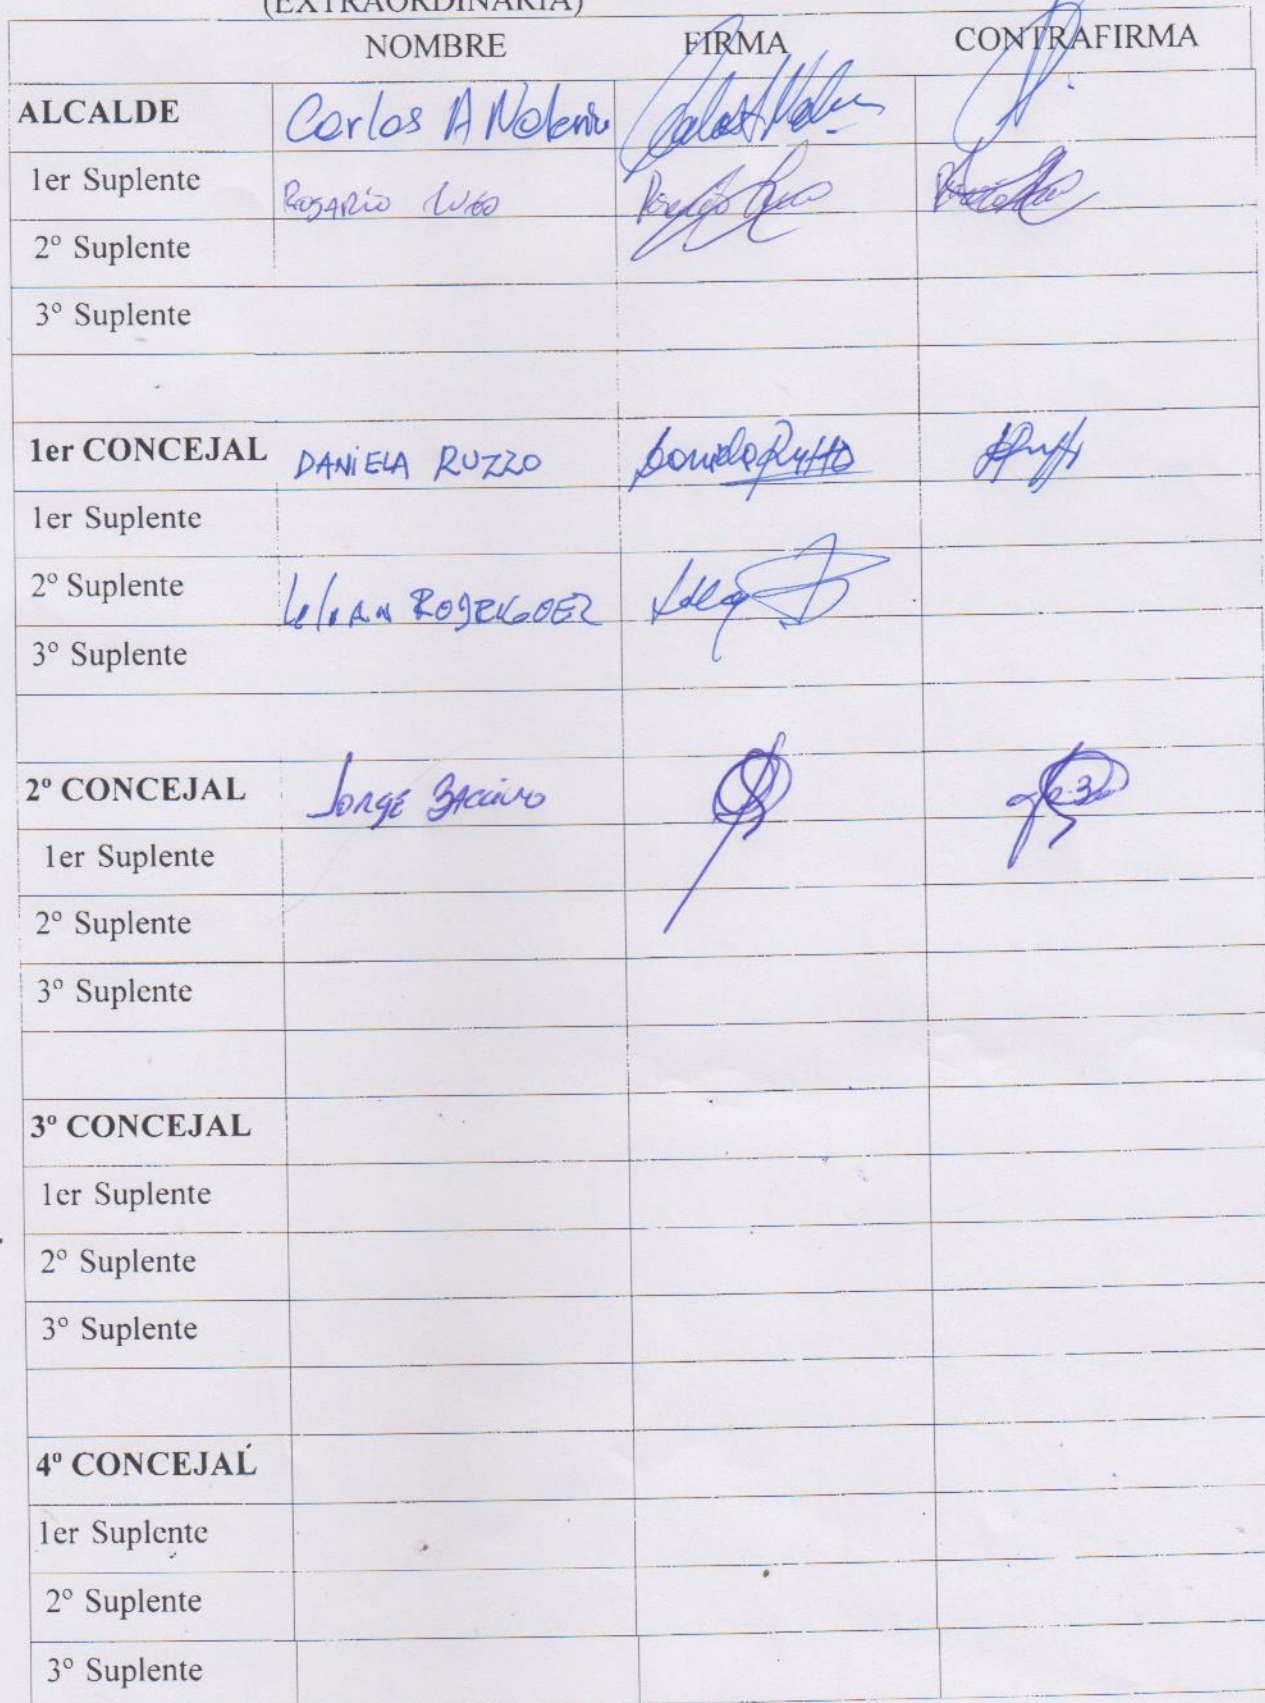 (EXTRAORDINARIA)
NOMBRE FIRMA CONTRAFIRMA
ALCALDE Carlos A
1er Suplente Rosario
2º Suplente
3º Suplente
1er CONCEJAL DANIELA RUZZO
1er Suplente
2º Suplente
3º Suplente
2º CONCEJAL JORGE
1er Suplente
2º Suplente
3º Suplente
3º CONCEJAL
1er Suplente
2º Suplente
3º Suplente
4º CONCEJAL
1er Suplente
2º Suplente
3º Suplente